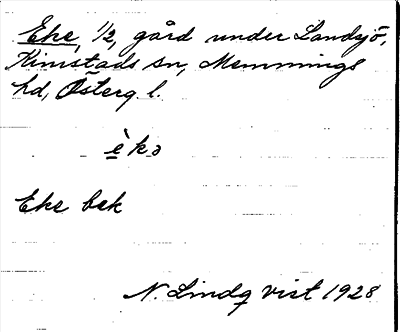 Eke, 1/2, gård under Landsjö,
Kimstads sn, Memmings
hd, Österg l.
èkə
Eke bek
N. Lindqvist 1928